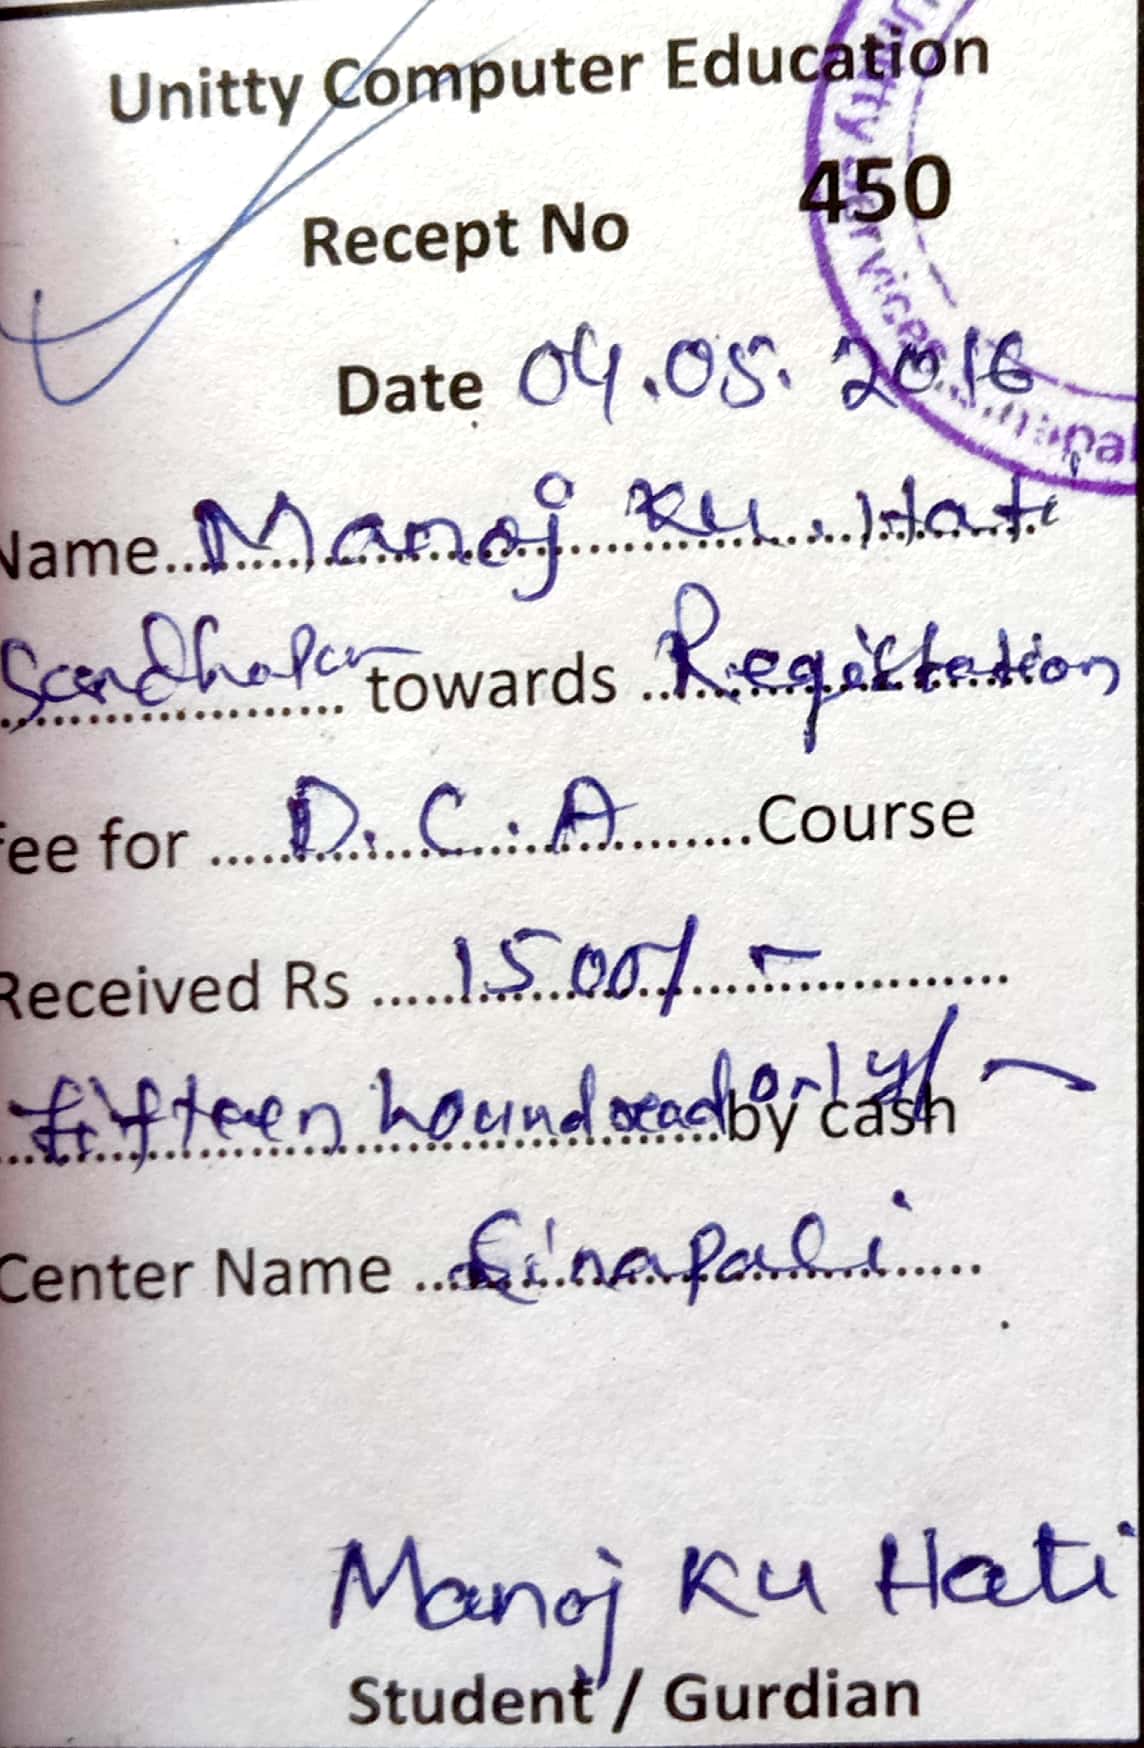 Unitty Computer Education
450
Recept No
Date 04.05.2016
Name Manoj Ku. Hati
towards Registetion
ee for D.C.A Course
Received Rs 1500/-
fifteen houndread only/- by cash
Center Name Sinapali
Manoj Ku Hati
Student / Gurdian
Unitty Services